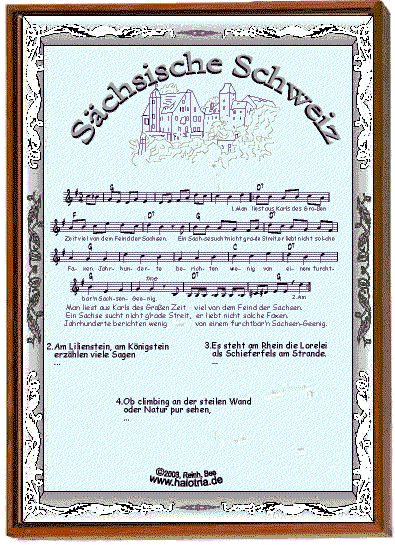 Sächsische Schweiz
G D7
1.Man liest aus Karls des Großen
F D7 G D7
Zeit viel von dem Feind der Sachsen. Ein Sachse sucht nicht grade Streit, er liebt nicht solche
G C G C
Fa- xen. Jahr- hun- der- te be- rich- ten we- nig von ei- nem furcht-
G fine D7 G D7
bar'n Sach- sen- Gee- nig. 2.Am
Man liest aus Karls des Großen Zeit viel von dem Feind der Sachsen.
Ein Sachse sucht nicht g'rade Streit, er liebt nicht solche Faxen.
Jahrhunderte berichten wenig von einem furchtbar'n Sachsen-Geenig.
2.Am Lilienstein, am Königstein
erzählen viele Sagen
...
3.Es steht am Rhein die Lorelei
als Schieferfels am Strande.
...
4.Ob climbing an der steilen Wand
oder Natur pur sehen,
...
©2003, Reich, Bee
www.halotria.de